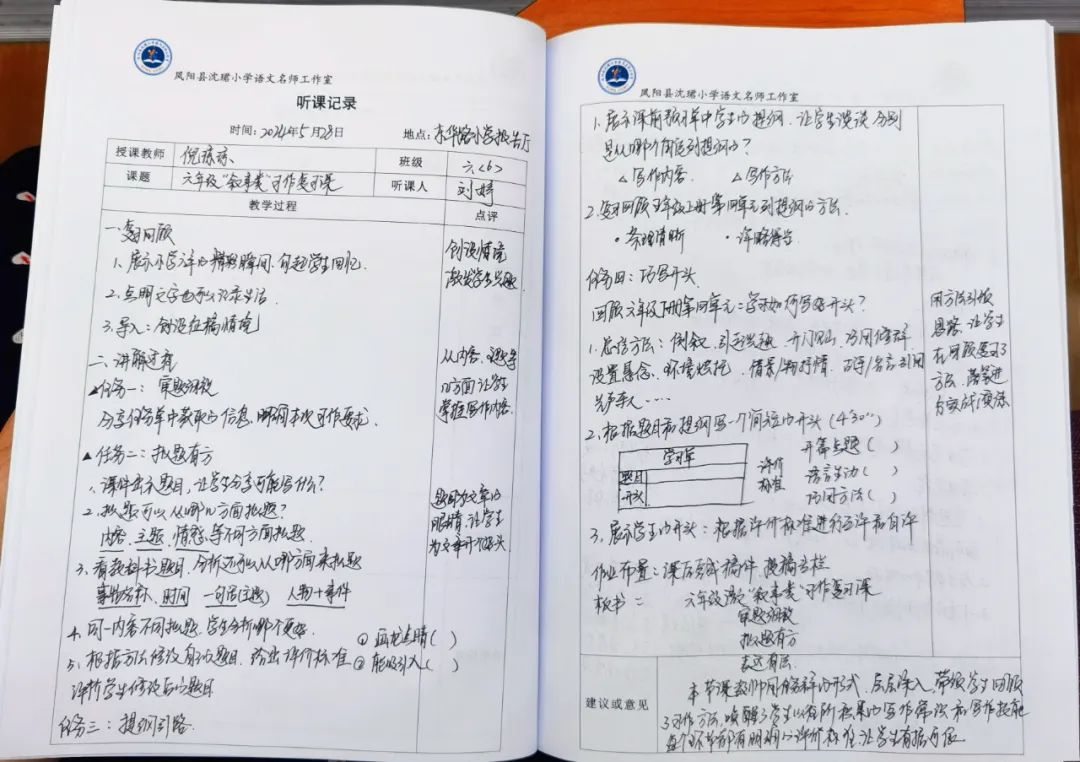 凤阳县沈珺小学语文名师工作室
听课记录
时间：2024年5月28日 地点：东华路小学报告厅
授课教师 倪琼琼 班级 六<6>
课题 六年级"叙事类"习作复习课 听课人 刘婷
教学过程 点评
一、复习回顾
1、展示小学六年的精彩瞬间，勾起学生回忆.
2.点明文字也可以记录生活.
3.导入：创设征稿情境
创设情境
激发学生兴趣
二、讲解过程
▲任务一： 审题细致
分享任务单中获取的信息，明确本次习作要求.
从内容、
几方面让学生
掌握写作内容.
▲任务二：拟题有方
1.课件出示题目，让学生分享可能写什么？
2.拟题可以从哪几方面拟题？
内容、主题、情感等不同方面拟题
题目为文章的
眼睛，让学生
为文章开个好头
3、看教科书题目，分析还可以从哪方面来拟题
事物名称、时间 一句话(主题) 人物+事件
4.同一内容不同拟题，学生分析哪个更好. ①画龙点睛( )
5、根据方法修改自己题目，给出评价标准 ②能吸引人( )
评析学生修改后的题目
任务三：提纲引路
凤阳县沈珺小学语文名师工作室
1.展示课前学习单中学生的提纲，让学生说说分别
是从哪个角度列提纲的？
△写作内容. △写作方法
2.复习回顾五年级上册第四单元列提纲的方法.
·条理清晰 ·详略得当
任务四：巧写开头
回顾六年级下册第四单元：学习如何写好开头？
1.总结方法：倒叙、引起兴趣、开门见山、巧用修辞、
设置悬念、环境烘托、借景/物抒情、古诗/名言引用
先声夺人……
用方法引领
思路，让学生
在回顾复习了
方法，落实进
行实战演练
2.根据题目和提纲写一个简短的开头(4'30'')
学习单
题目
开头
评价
标准
开篇点题( )
语言生动( )
巧用方法( )
3.展示学生的开头：根据评价标准进行互评和自评
作业布置：课后完成稿件，投稿专栏
板书： 六年级语文"叙事类"习作复习课
审题细致
拟题有方
表达有法
建议或意见
本节课教师用任务群的形式，层层深入，带领学生回顾
了习作方法，唤醒了学生以有所积累的写作常识和写作技能
每个环节都有明确的评价标准，让学生有据可依